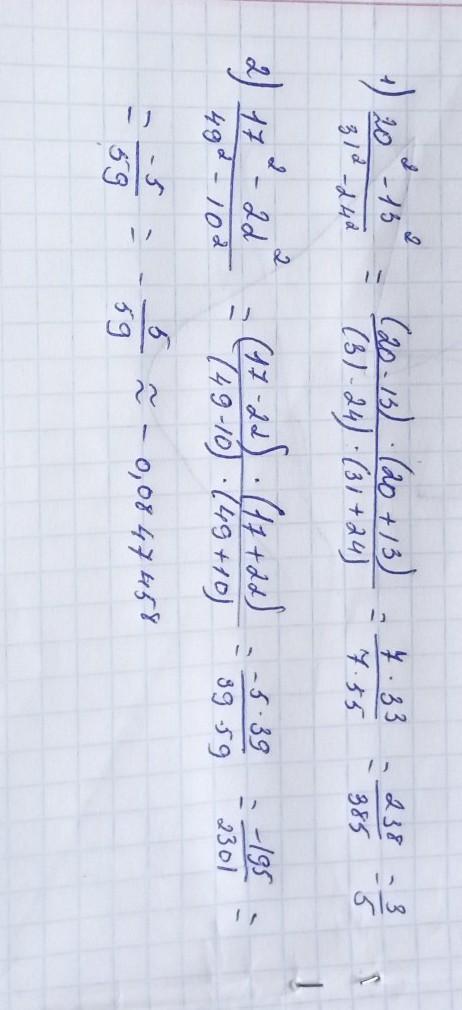 1) (20² - 13²)/(31² - 24²) = ((20 - 13) · (20 + 13))/((31 - 24) · (31 + 24)) = (7 · 33)/(7 · 55) = 238/385 = 3/5
2) (17² - 22²)/(49² - 10²) = ((17 - 22) · (17 + 22))/((49 - 10) · (49 + 10)) = (-5 · 39)/(39 · 59) = -195/2301 =
= -5/59 = - 5/59 ≈ - 0,0847458